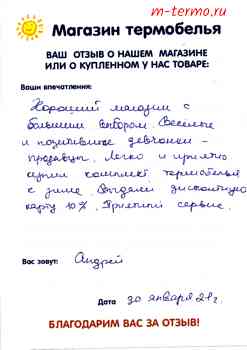 m-termo.ru
Магазин термобелья
ВАШ ОТЗЫВ О НАШЕМ МАГАЗИНЕ
ИЛИ О КУПЛЕННОМ У НАС ТОВАРЕ:
Ваши впечатления:
Хороший магазин с
большим выбором. Весёлые
и позитивные девчонки -
продавцы. Легко и приятно
купил комплект термобелья
к зиме. Выдали дисконтную
карту 10%. Приятный сервис.
Вас зовут: Андрей
Дата 20 января 21г.
БЛАГОДАРИМ ВАС ЗА ОТЗЫВ!